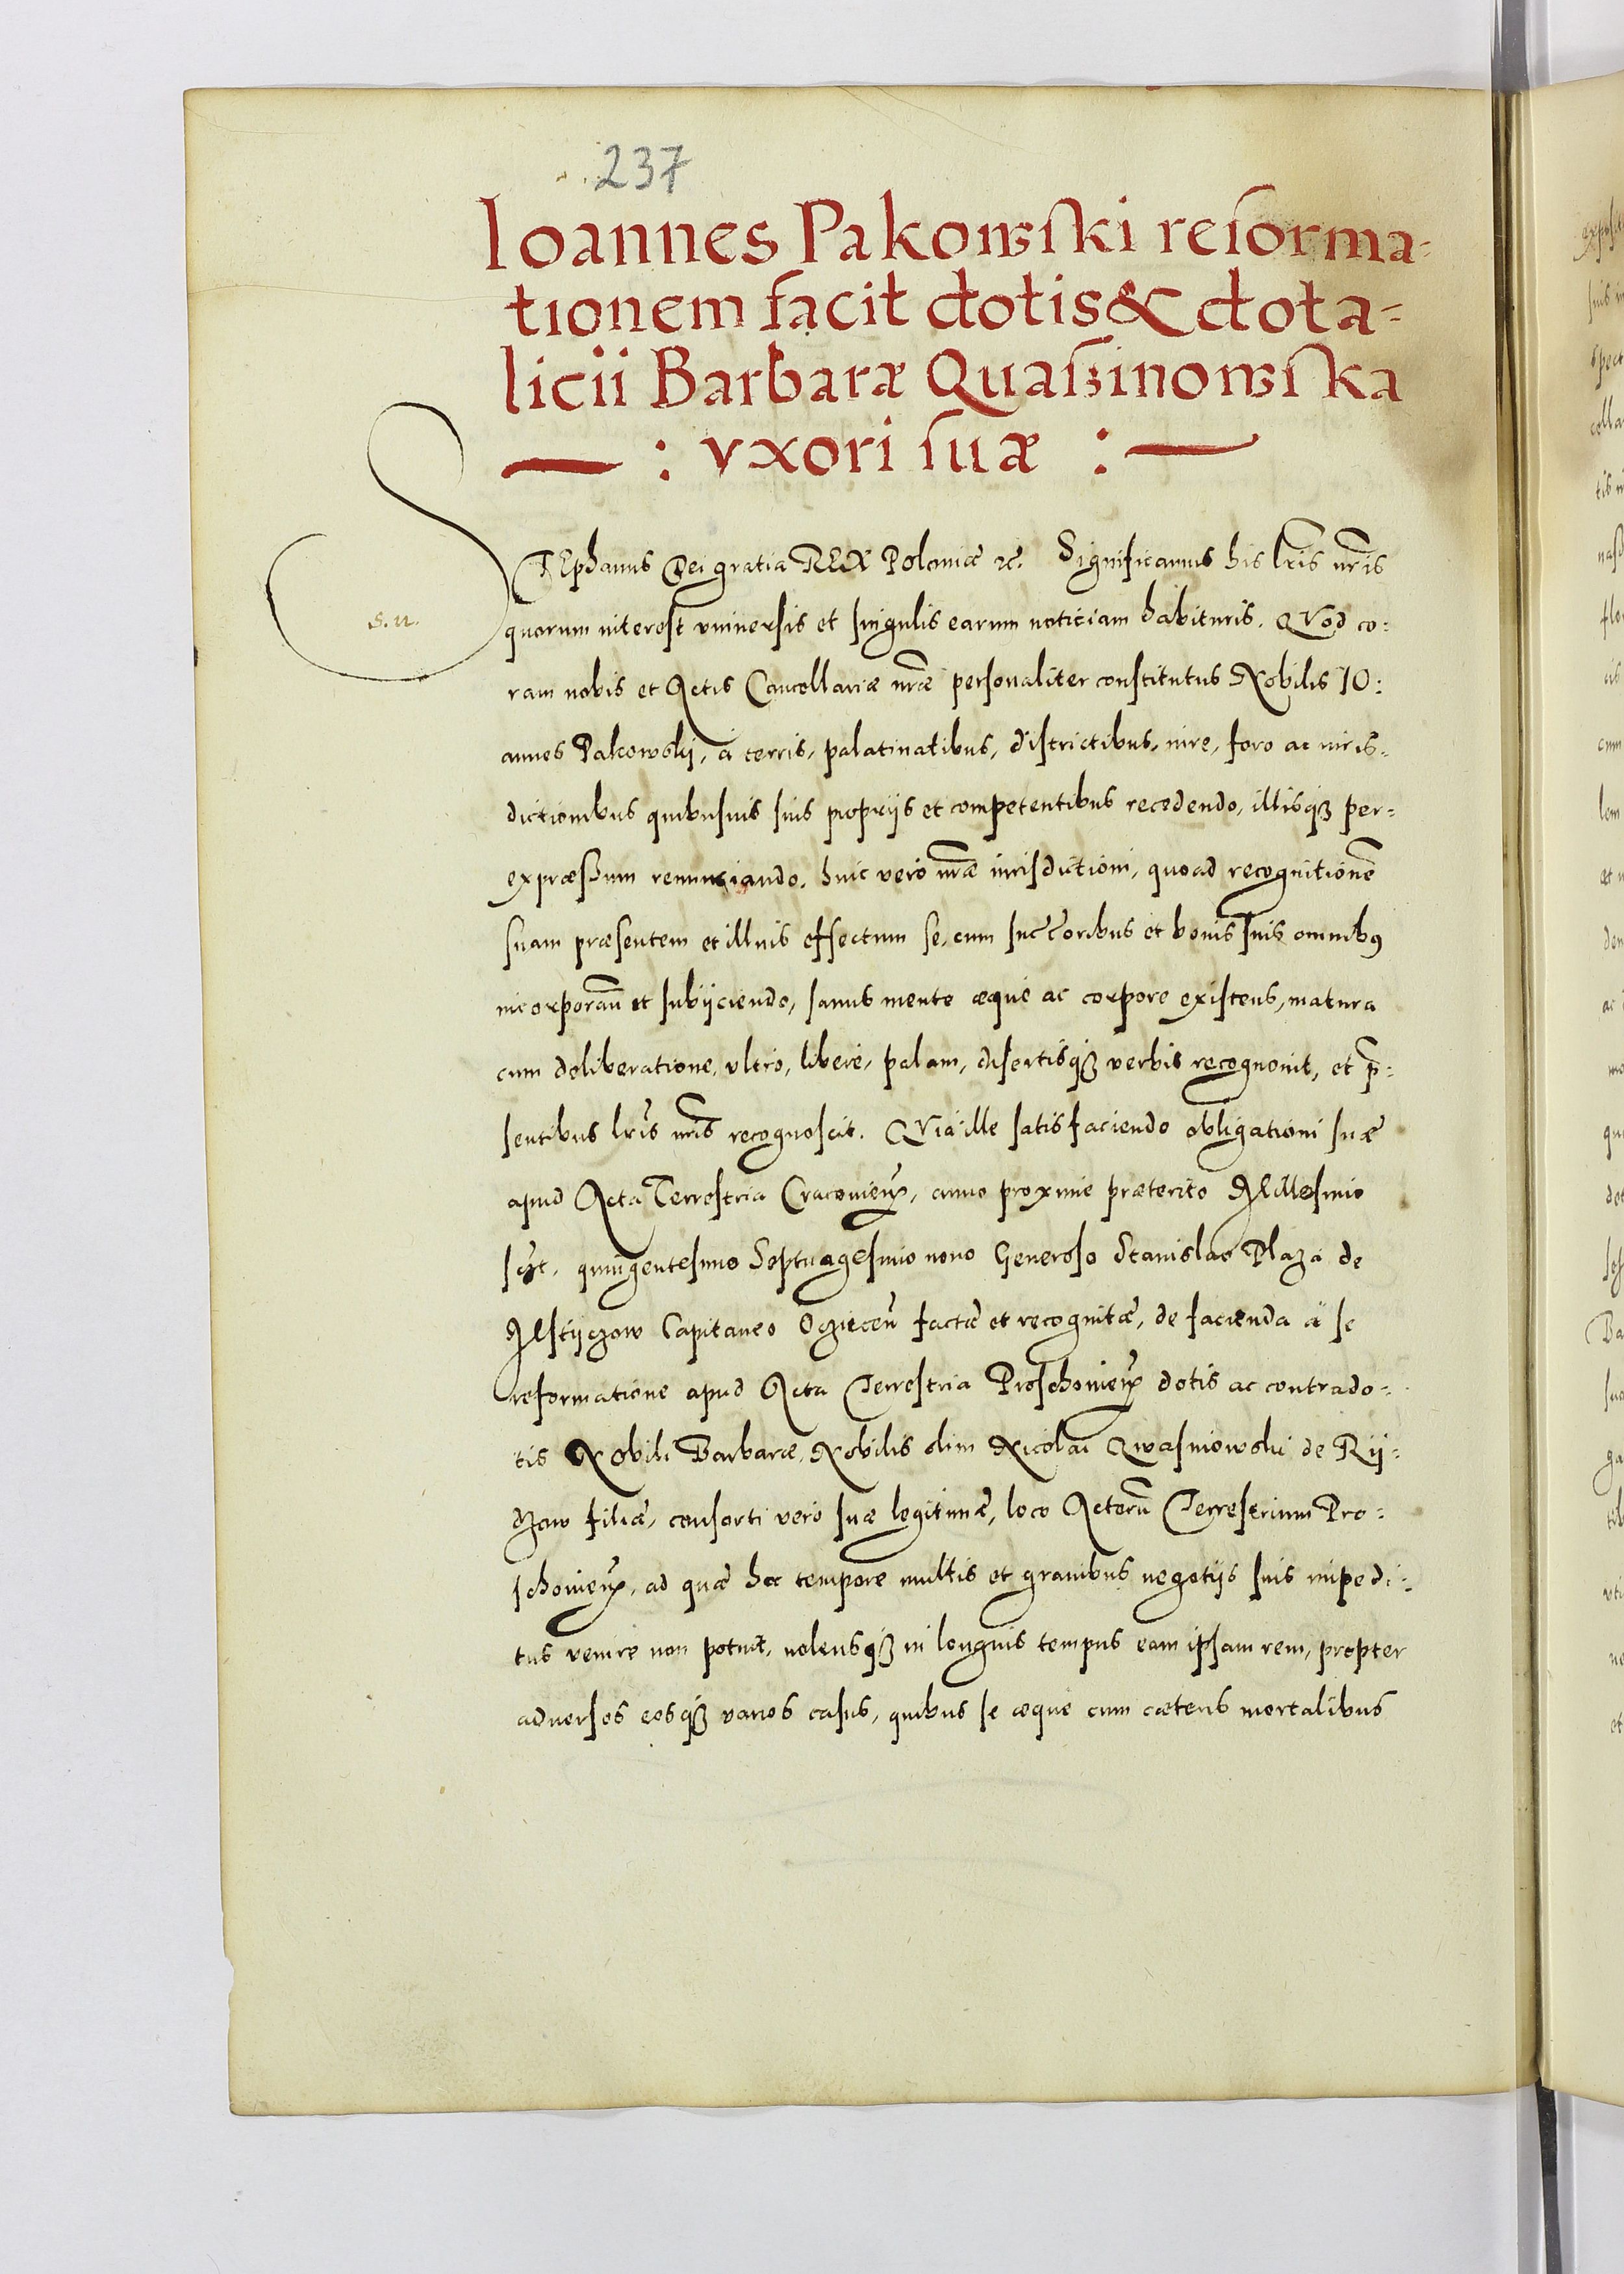 237
Ioannes Pakowski reforma-
tionem facit dotis & dota-
licii Barbaræ Quaßinowska
: vxori suæ :
s. n.
STEphanus Dei gratia REX Poloniæ &c. Significamus his lris nris
quorum interest vniuersis et singulis earum noticiam habituris. QVod co:
ram nobis et Actis Cancellariæ nræ personaliter constitutus Nobilis IO:
annes Pakowsky, à terris, palatinatibus, districtibus, iure, foro ac iuris-
dictionibus quibusuis suis proprijs et competentibus recedendo, illisqȝ per-
expræssum renunciando. huic verò nræ iurisdictioni, quoad recognitionẽ
suam præsentem et illius effectum se, cum succoribus et bonis suis omnibꝰ
incorporañ et subijciendo, sanus mente æque ac corpore existens, matura
cum deliberatione, vltrò, liberè, palam, disertisqȝ verbis recognouit, et p̃-
sentibus lris nris recognoscit. QVia ille satisfaciendo obligationi suæ
apud Acta Terrestria Cracouieñ, anno proxime præterito Millesimo
sczt. quingentesimo Septuagesimo nono Generoso Stanislao Plaza de
Mstyczow Capitaneo Oczieceñ factæ et recognitæ, de facienda à se
reformatione apud Acta Terrestria Proschouieñ dotis ac contrado-
tis Nobili Barbaræ, Nobilis olim Nicolai Qwasniowski de Ry-
czow filiæ, consorti verò suæ legitimæ, loco Actorũ Terrestrium Pro-
schouieñ, ad quæ hoc tempore multis et grauibus negotijs suis impedi-
tus venire non potuit, nolensqȝ in longuis tempus eam ipsam rem, propter
aduersos eosqȝ varios casus, quibus se æque cum cæteris mortalibus